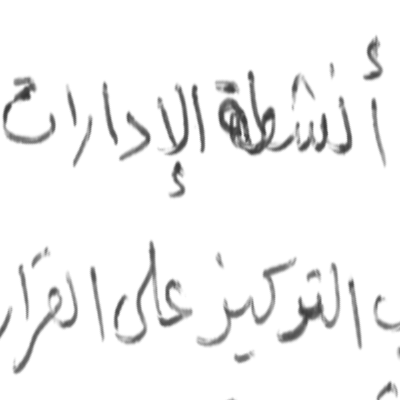 أنشطة الإدارات
التركيز على القرار